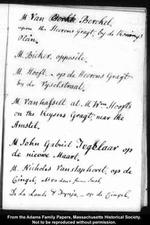 M Van Berckel
upon the Heerens Gragt, by de
Plein.
M. Bicker, opposite.
M. Hooft. - op de Heerens Gragt
by de Vyselstraat.
M. Vanhasselt at M. Wm Hoofts
on the Keysers Gragt, near the
Amstel.
M John Gabriel Tegelaar op
de nieuwe Maart.
M. Nicholas Vanstaphorst, op de
Cingel,
De la Lande & Fynje, - op de Cingel
From the Adams Family Papers, Massachusetts Historical Society.
Not to be reproduced without permission.